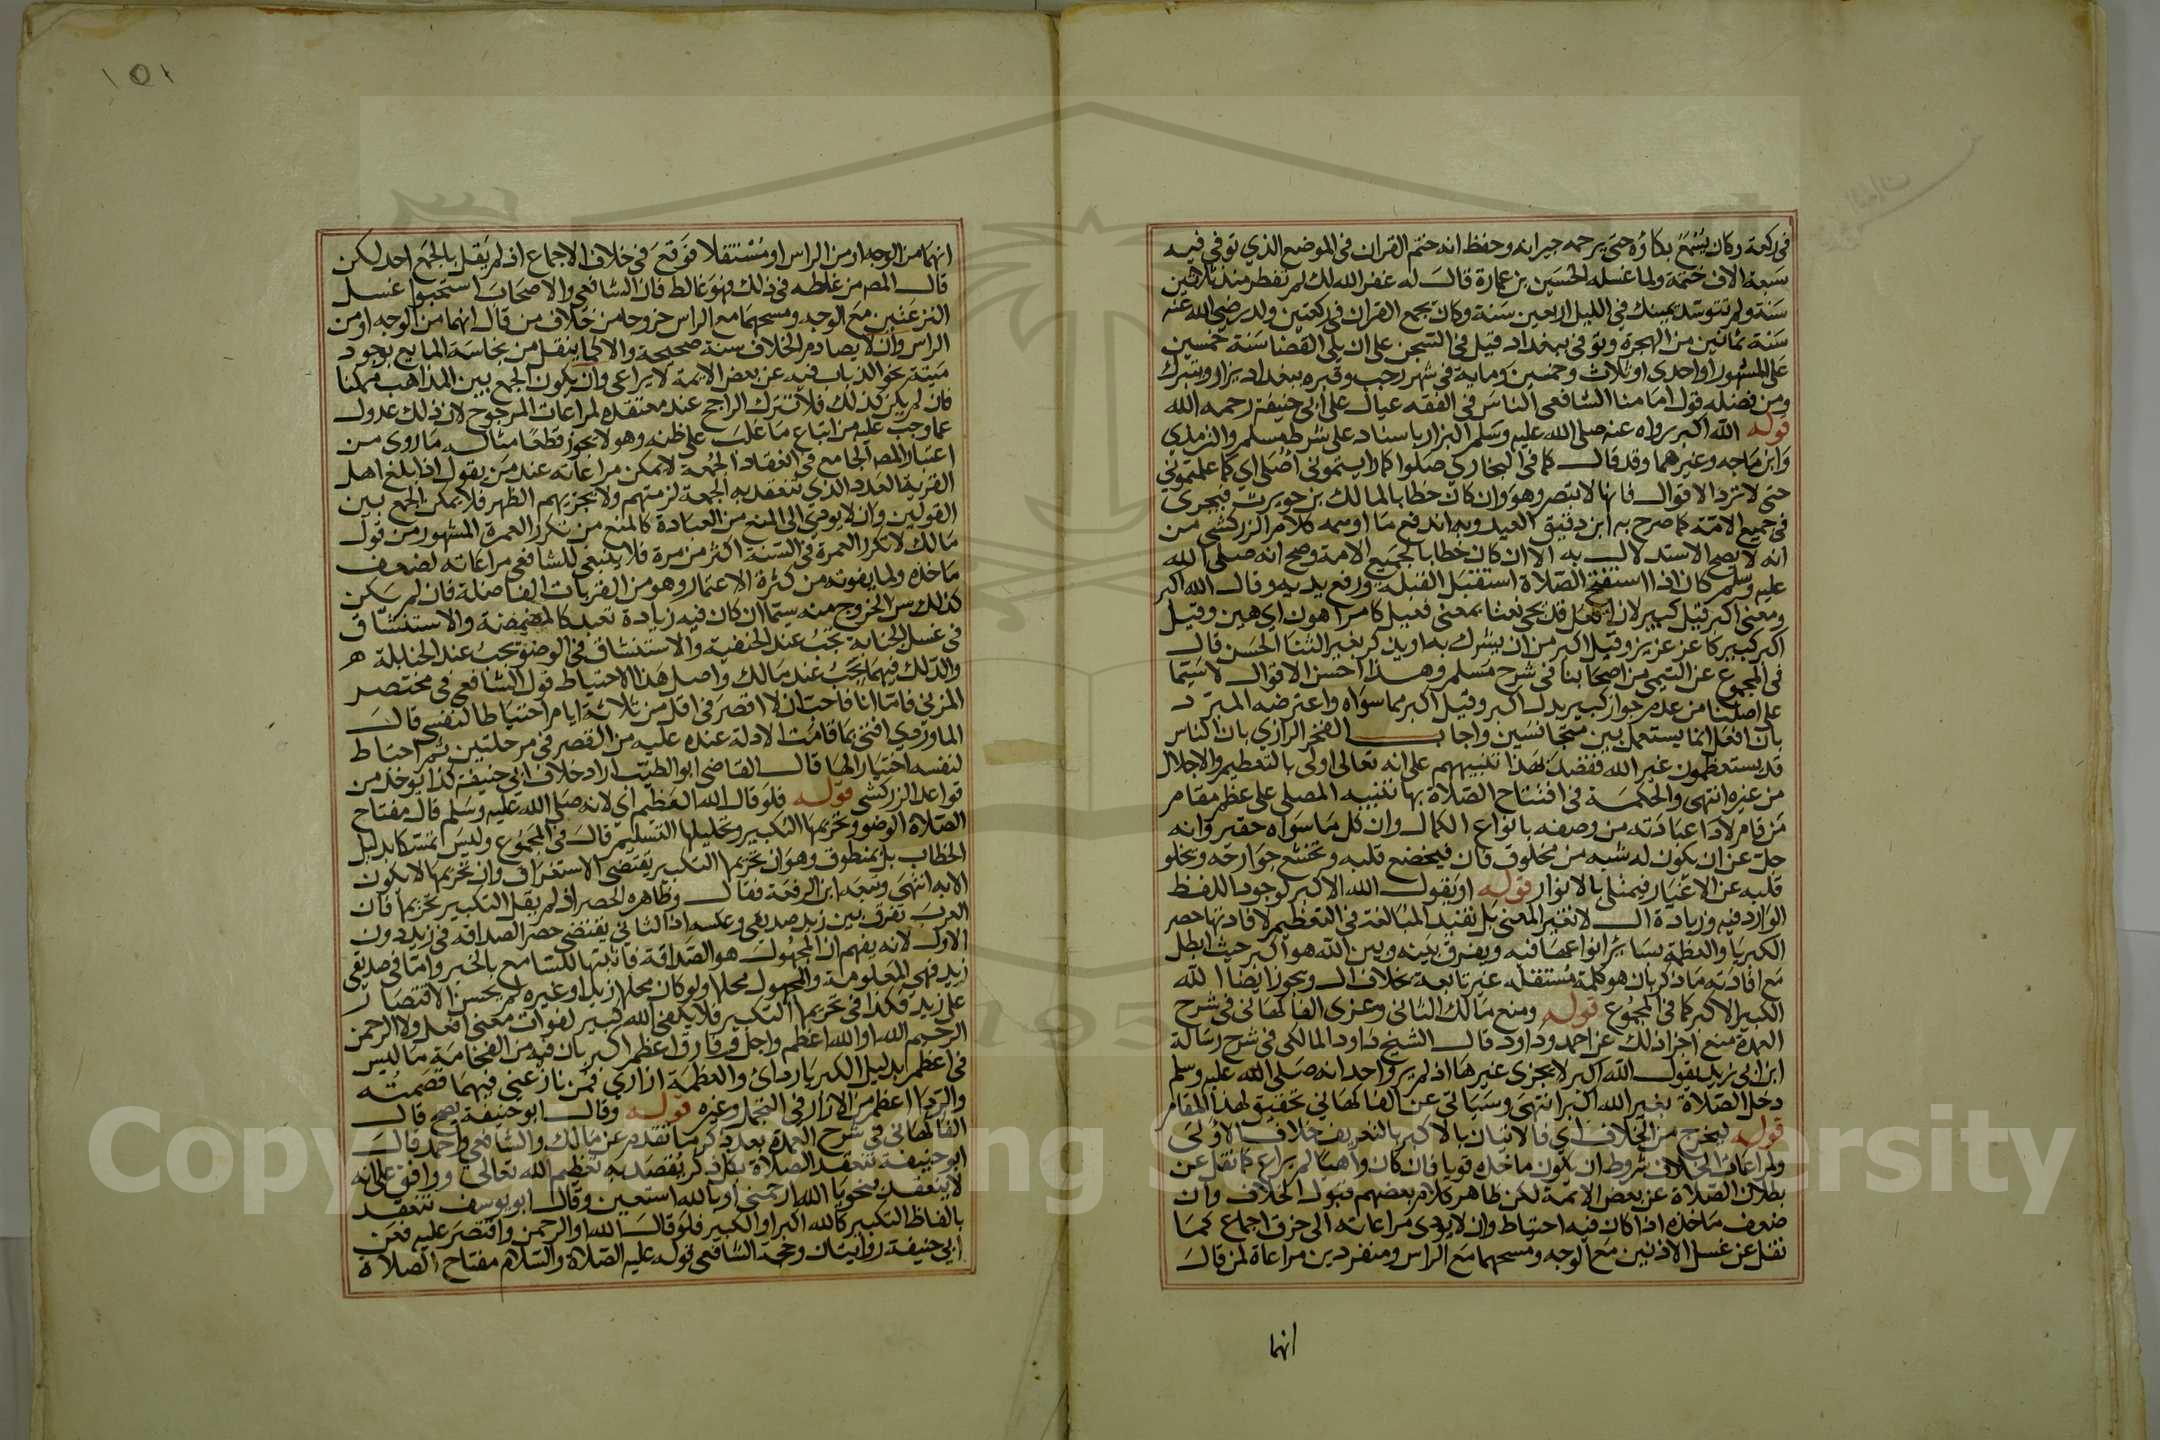 في ركعة وكان يُسْمَعُ بكاؤه حتى يرحمه جيرانه وحفظ انه ختم القران في الموضع الذي توفي فيه
سبعة الاف ختمة ولما غسله الحسين بن عمارة قال له غفر الله لك لم تفطر منذ ثلاثين
سنة ولم تتوسد يمينك في الليل اربعين سنة وكان يجمع القران في ركعتين ولد رضي الله عنه
سنة ثمانين من الهجرة وتوفي ببغداد قيل في السجن على ان يلي القضا سنة خمسين
على المشهور او احدى او ثلاث وخمسين وماية في شهر رجب وقبره ببغداد يزار ويتبرك
ومن فضله قول امامنا الشافعي الناس في الفقه عيال على ابي حنيفة رحمه الله
قوله الله اكبر رواه عنه صلى الله عليه وسلم البزار باسناد على شرط مسلم والترمذي
وابن ماجه وغيرهما وقد قال كما في البخاري صلوا كما رايتموني اصلي اي كما علمتموني
حتى لا ترد الاقوال فانها لا تبصر وهو وان كان خطابا لمالك بن حويرث فيجري
في جميع الامة كما صرح به ابن دقيق العيد وبه اندفع ما اوهمه كلام الزركشي من
انه لا يصح الاستدلال به الا ان كان خطابا لجميع الامة وصح انه صلى الله
عليه وسلم كان اذا استفتح الصلاة استقبل القبلة ورفع يديه وقال الله اكبر
ومعنى اكبر قيل كبير لان افعل قد يجي نعتا بمعنى فعيل كامر اهون اي هين وقيل
اكبر كبير كاعز عزيز وقيل اكبر من ان يشرك به او يذكر بغير الثنا الحسن قال
في المجموع عن التيمي من اصحابنا في شرح مسلم وهذا احسن الاقوال لا سيما
على اصلنا من عدم جواز كبير بدل اكبر وقيل اكبر مما سواه واعترضه المبرد
بان افعل انما يستعمل بين متجانسين واجاب الفخر الرازي بان الناس
قد يستعظمون غير الله فقصد بهذا تنبيههم على انه تعالى اولى بالتعظيم والاجلال
من غيره انتهى والحكمة في افتتاح الصلاة بها تنبيه المصلي على عظم مقام
من قام لاداء عبادته من وصفه بانواع الكمال وان كل ما سواه حقير وانه
جل عن ان يكون له شبه من مخلوق فان فيخضع قلبه وتخشع جوارحه ويخلو
قلبه عن الاغيار فيمتلى بالانوار قوله او يقول الله الاكبر لوجود اللفظ
الوارد فيه وزيادة ال لا تغير المعنى بل تفيد المبالغة في التعظيم لافادتها حصر
الكبريا والعظمة بسائر انواعها فيه ويفرق بينه وبين الله هو اكبر حيث ابطل
مع افادته ما ذكر بان هو كلمة مستقلة غير تابعة بخلاف ال ويجوز ايضا الله
الكبير الاكبر كما في المجموع قوله ومنع مالك الثاني وعزى الفاكهاني في شرح
العمدة منع اجزا ذلك عن احمد وداود قال الشيخ داود المالكي في شرح رسالة
ابن ابي زيد بقول الله اكبر لا يجزى غيرها اذ لم يرو احد انه صلى الله عليه وسلم
دخل الصلاة بغير الله اكبر انتهى وسياتي عن الفاكهاني تحقيق لهذا المقام
قوله ليخرج من الخلاف اي فالاتيان بالاكبر بالتعريف خلاف الاولى
ولمراعات الخلاف شروط ان يكون ماخذه قويا فان كان واهيا لم يراع كما نقل عن
بطلان الصلاة عن بعض الايمة لكن ظاهر كلام بعضهم قبول الخلاف وان
ضعف ماخذه اذا كان فيه احتياط وان لا يؤدي مراعاته الى خرق اجماع كما
نقل عن غسل الاذنين مع الوجه ومسحهما مع الراس ومنفردين مراعاة لمن قال
انهما
١٥١
انهما من الوجه او من الراس او مُسْتقلا فوقع في خلاف الاجماع اذ لم يقل بالجمع احد لكن
قال المص من غلطه في ذلك فهو غالط فان الشافعي والاصحاب استحبوا غسل
النزعتين مع الوجه ومسحهما مع الراس خروجا من خلاف من قال انهما من الوجه او من
الراس وان لا يصادم الخلاف سنة صحيحة والا كما ينقل من نجاسة المايع بوجود
ميتة نحو الذباب فيه عن بعض الايمة لا يراعى وان يكون الجمع بين المذاهب ممكنا
فان لم يكن كذلك فلا تترك الراجح عند معتقده لمراعات المرجوح لان ذلك عدول
عما وجب عليه من اتباع ما غلب على ظنه وهو لا يجوز قطعا مثاله ما روي من
اعتبار المصر الجامع في انعقاد الجمعة لا يمكن مراعاته عند من يقول اذا بلغ اهل
القرية العدد الذي تنعقد به الجمعة لزمتهم ولا تجزيهم الظهر فلا يمكن الجمع بين
القولين وان لا يودي الى المنع من العبادة كالمنع من تكرر العمرة المشهور من قول
مالك لا تكرر العمرة في السنة اكثر من مرة فلا ينبغي للشافعي مراعاته لضعف
ماخذه ولما يفوته من كثرة الاعتمار وهو من القربات الفاضلة فان لم يكن
كذلك سن الخروج منه سيما ان كان فيه زيادة تعبد كالمضمضة والاستنشاق
في غسل الجنابة يجب عند الحنفية والاستنشاق في الوضو يجب عند الحنابلة
والدلك فيهما يجب عند مالك واصل هذا الاحتياط قول الشافعي في مختصر
المزني فاما انا فاحب ان لا اقصر في اقل من ثلاثة ايام احتياطا لنفسي قال
الماوردي افتى بما قامت الادلة عنده عليه من القصر في مرحلتين ثم احتاط
لنفسه اختيارا لها قال القاضي ابو الطيب اراد خلاف ابي حنيفة كذا يوخذ من
قواعد الزركشي قوله فلو قال الله العظيم اي لانه صلى الله عليه وسلم قال مفتاح
الصلاة الوضو وتحريمها التكبير وتحليلها التسليم قال في المجموع وليس تمسكا بدليل
الخطاب بل بمنطوق وهو ان تحريمها التكبير يقتضي الاستغراق وان تحريمها لا يكون
الا به انتهى وتبعه ابن الرفعة فقال وظاهره الحصر اذ لم يقل التكبير تحريمها فان
العرب تفرق بين زيد صديقي وعكسه اذ الثاني يقتضي حصر الصداقه في زيد دون
الاول لانه يفهم ان المجهول هو الصداقة فاثبتها للسامع بالخبر واما في صديقي
زيد فهي المعلومة والمجهول محلها ولو كان محلها زيدا وغيره لم يحسن الاقتصار
على زيد فكذا في تحريمها التكبير فلا يكفي الله كبير لفوات معنى افعل ولا الرحمن
الرحيم الله او الله اعظم واجل وفارق اعظم اكبر بان فيه من الفخامة ما ليس
في اعظم بدليل الكبريا رداي والعظمة ازاري فمن نازعني فيهما قصمته
والردا اعظم من الازار في التجمل وغيره قوله وقال ابو حنيفة يصح قال
الفاكهاني في شرح العمدة بعد ذكر ما تقدم عن مالك والشافعي واحمد قال
ابو حنيفة تنعقد الصلاة بكل ذكر يُقصد به تعظيم الله تعالى ووافق على انه
لا ينعقد بنحو يا الله ارحمني او بالله استعين وقال ابو يوسف تنعقد
بالفاظ التكبير كالله اكبر او الكبير فلو قال الله او الرحمن واقتصر عليه فعن
ابي حنيفة روايتان وحجة الشافعي قوله عليه الصلاة والسلام مفتاح الصلاة